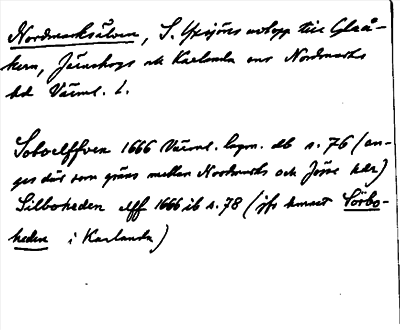 Nordmarksälven, S. Ysjöns utlopp till Glaå-
kern, Järnskogs ock Karlanda sns Nordmarks
hd Värml. l.
Soboelffven 1666 Värml. lagm. db s. 76 (an-
ges där som gräns mellan Nordmarks och Jösse hdr)
Silboheden elff 1666 ib s. 78 (jfr hmnet Sörbo-
heden i Karlanda)